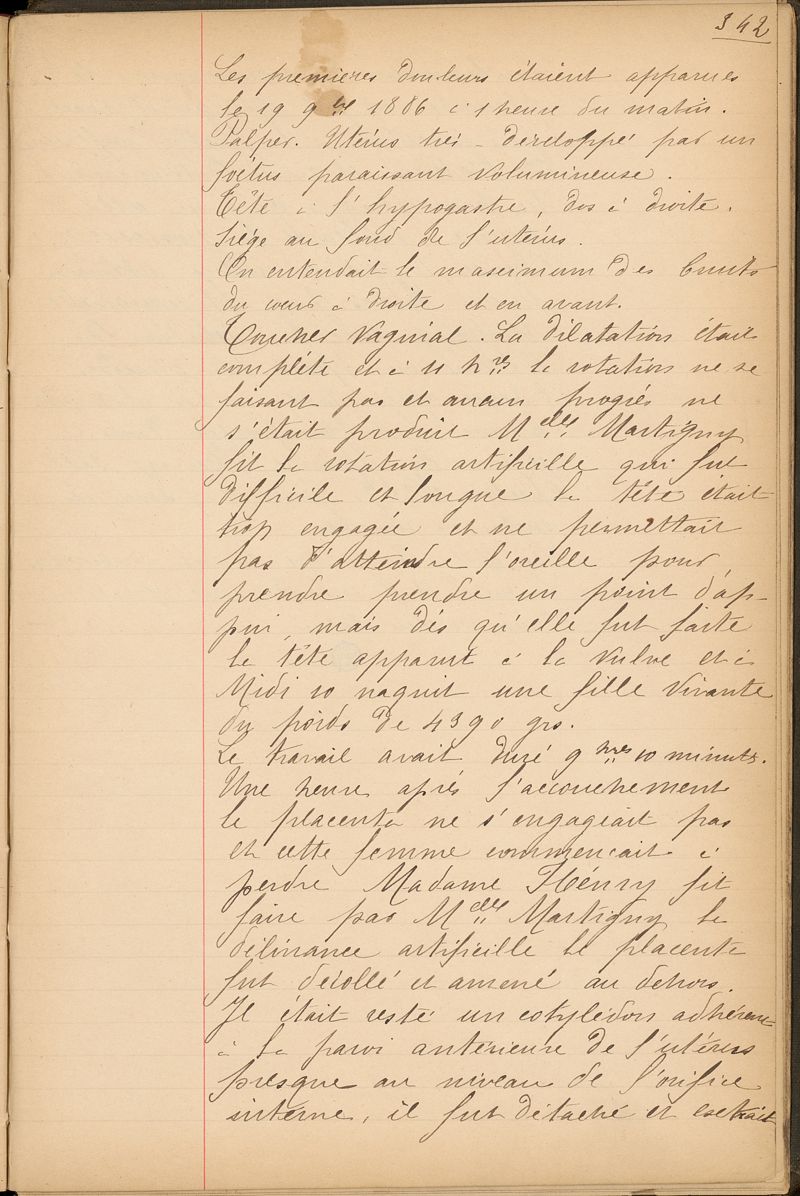 342
Les premières douleurs étaient apparues
le 19 9bre 1886 à 1 heure du matin.
Palper. Utérus très-développé par un
foétus paraissant volumineuse.
Tête à l'hypogastre, dos à droite.
Siège au fond de l'utérus.
On entendait le maximum des bruits
du coeur à droite et en avant.
Toucher vaginal. La dilatation était
complète et à 11 hres la rotation ne se
faisant pas et aucun progrès ne
s'était produit Melle Martigny
fit la rotation artificielle qui fut
difficile et longue la tête était
trop engagée et ne permettait
pas d'atteindre l'oreille pour
prendre prendre un point d'ap-
pui, mais dès qu'elle fut faite
la tête apparut à la vulve et à
Midi 10 naquit une fille vivante
du poids de 4390 grs.
Le travail avait duré 9 hres 10 minutes.
Une heure après l'accouchement
le placenta ne s'engageait pas
et cette femme commençait à
perdre Madame Hénry fit
faire par Melle Martigny la
délivrance artificielle le placenta
fut décollé et amené au dehors.
Il était resté un cotylédon adhérent
à la paroi antérieure de l'utérus
presque au niveau de l'orifice
interne, il fut détaché et extrait